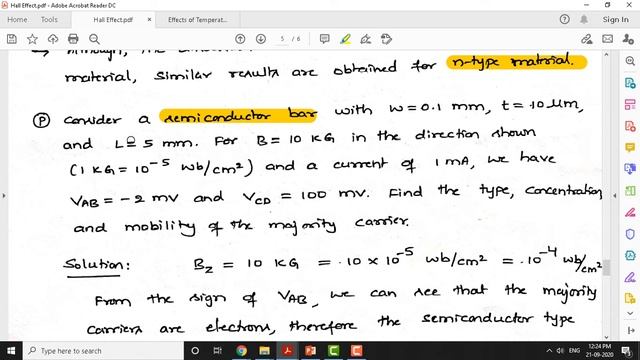 Hall Effect.pdf - Adobe Acrobat Reader DC
File Edit View Window Help
Home Tools Hall Effect.pdf × Effects of Temperat... Sign In
5 / 6
material, similar results are obtained for n-type material.
(P) Consider a semiconductor bar with w = 0.1 mm, t = 10 μm,
and L = 5 mm. For B = 10 KG in the direction shown
(1 KG = 10⁻⁵ wb/cm²) and a current of 1 mA, we have
VAB = -2 mV and VCD = 100 mV. Find the type, concentration
and mobility of the majority carrier.
Solution: Bz = 10 KG = 10 × 10⁻⁵ wb/cm² = 10⁻⁴ wb/cm²
From the sign of VAB, we can see that the majority
carriers are electrons, therefore the semiconductor type
12:24 PM
ENG
21-09-2020